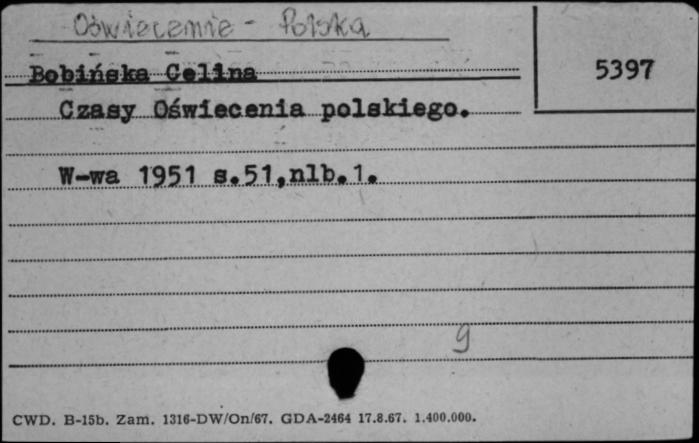 Oświecenie - Polska
Bobińska Celina
5397
Czasy Oświecenia polskiego.
W-wa 1951 s.51,nlb.1.
g
CWD. B-15b. Zam. 1316-DW/On/67. GDA-2464 17.8.67. 1.400.000.